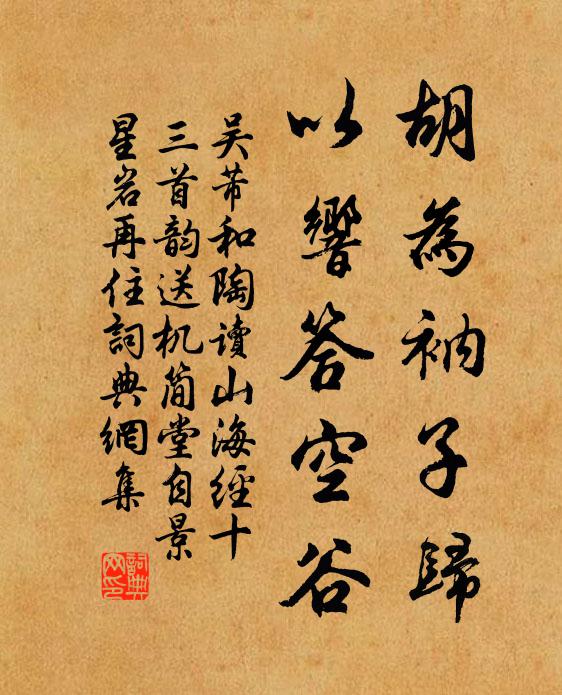 胡為衲子歸
以響答空谷
吴芾和陶讀山海經十
三首韵送机简堂自景
星岩再住詞典網集
詞典
网印